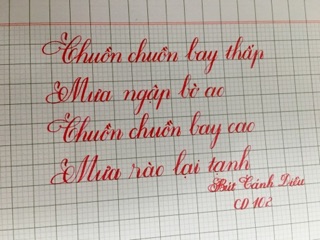 Chuồn chuồn bay thấp
Mưa ngập bờ ao
Chuồn chuồn bay cao
Mưa rào lại tạnh
Bút Cánh Diều
CD 102